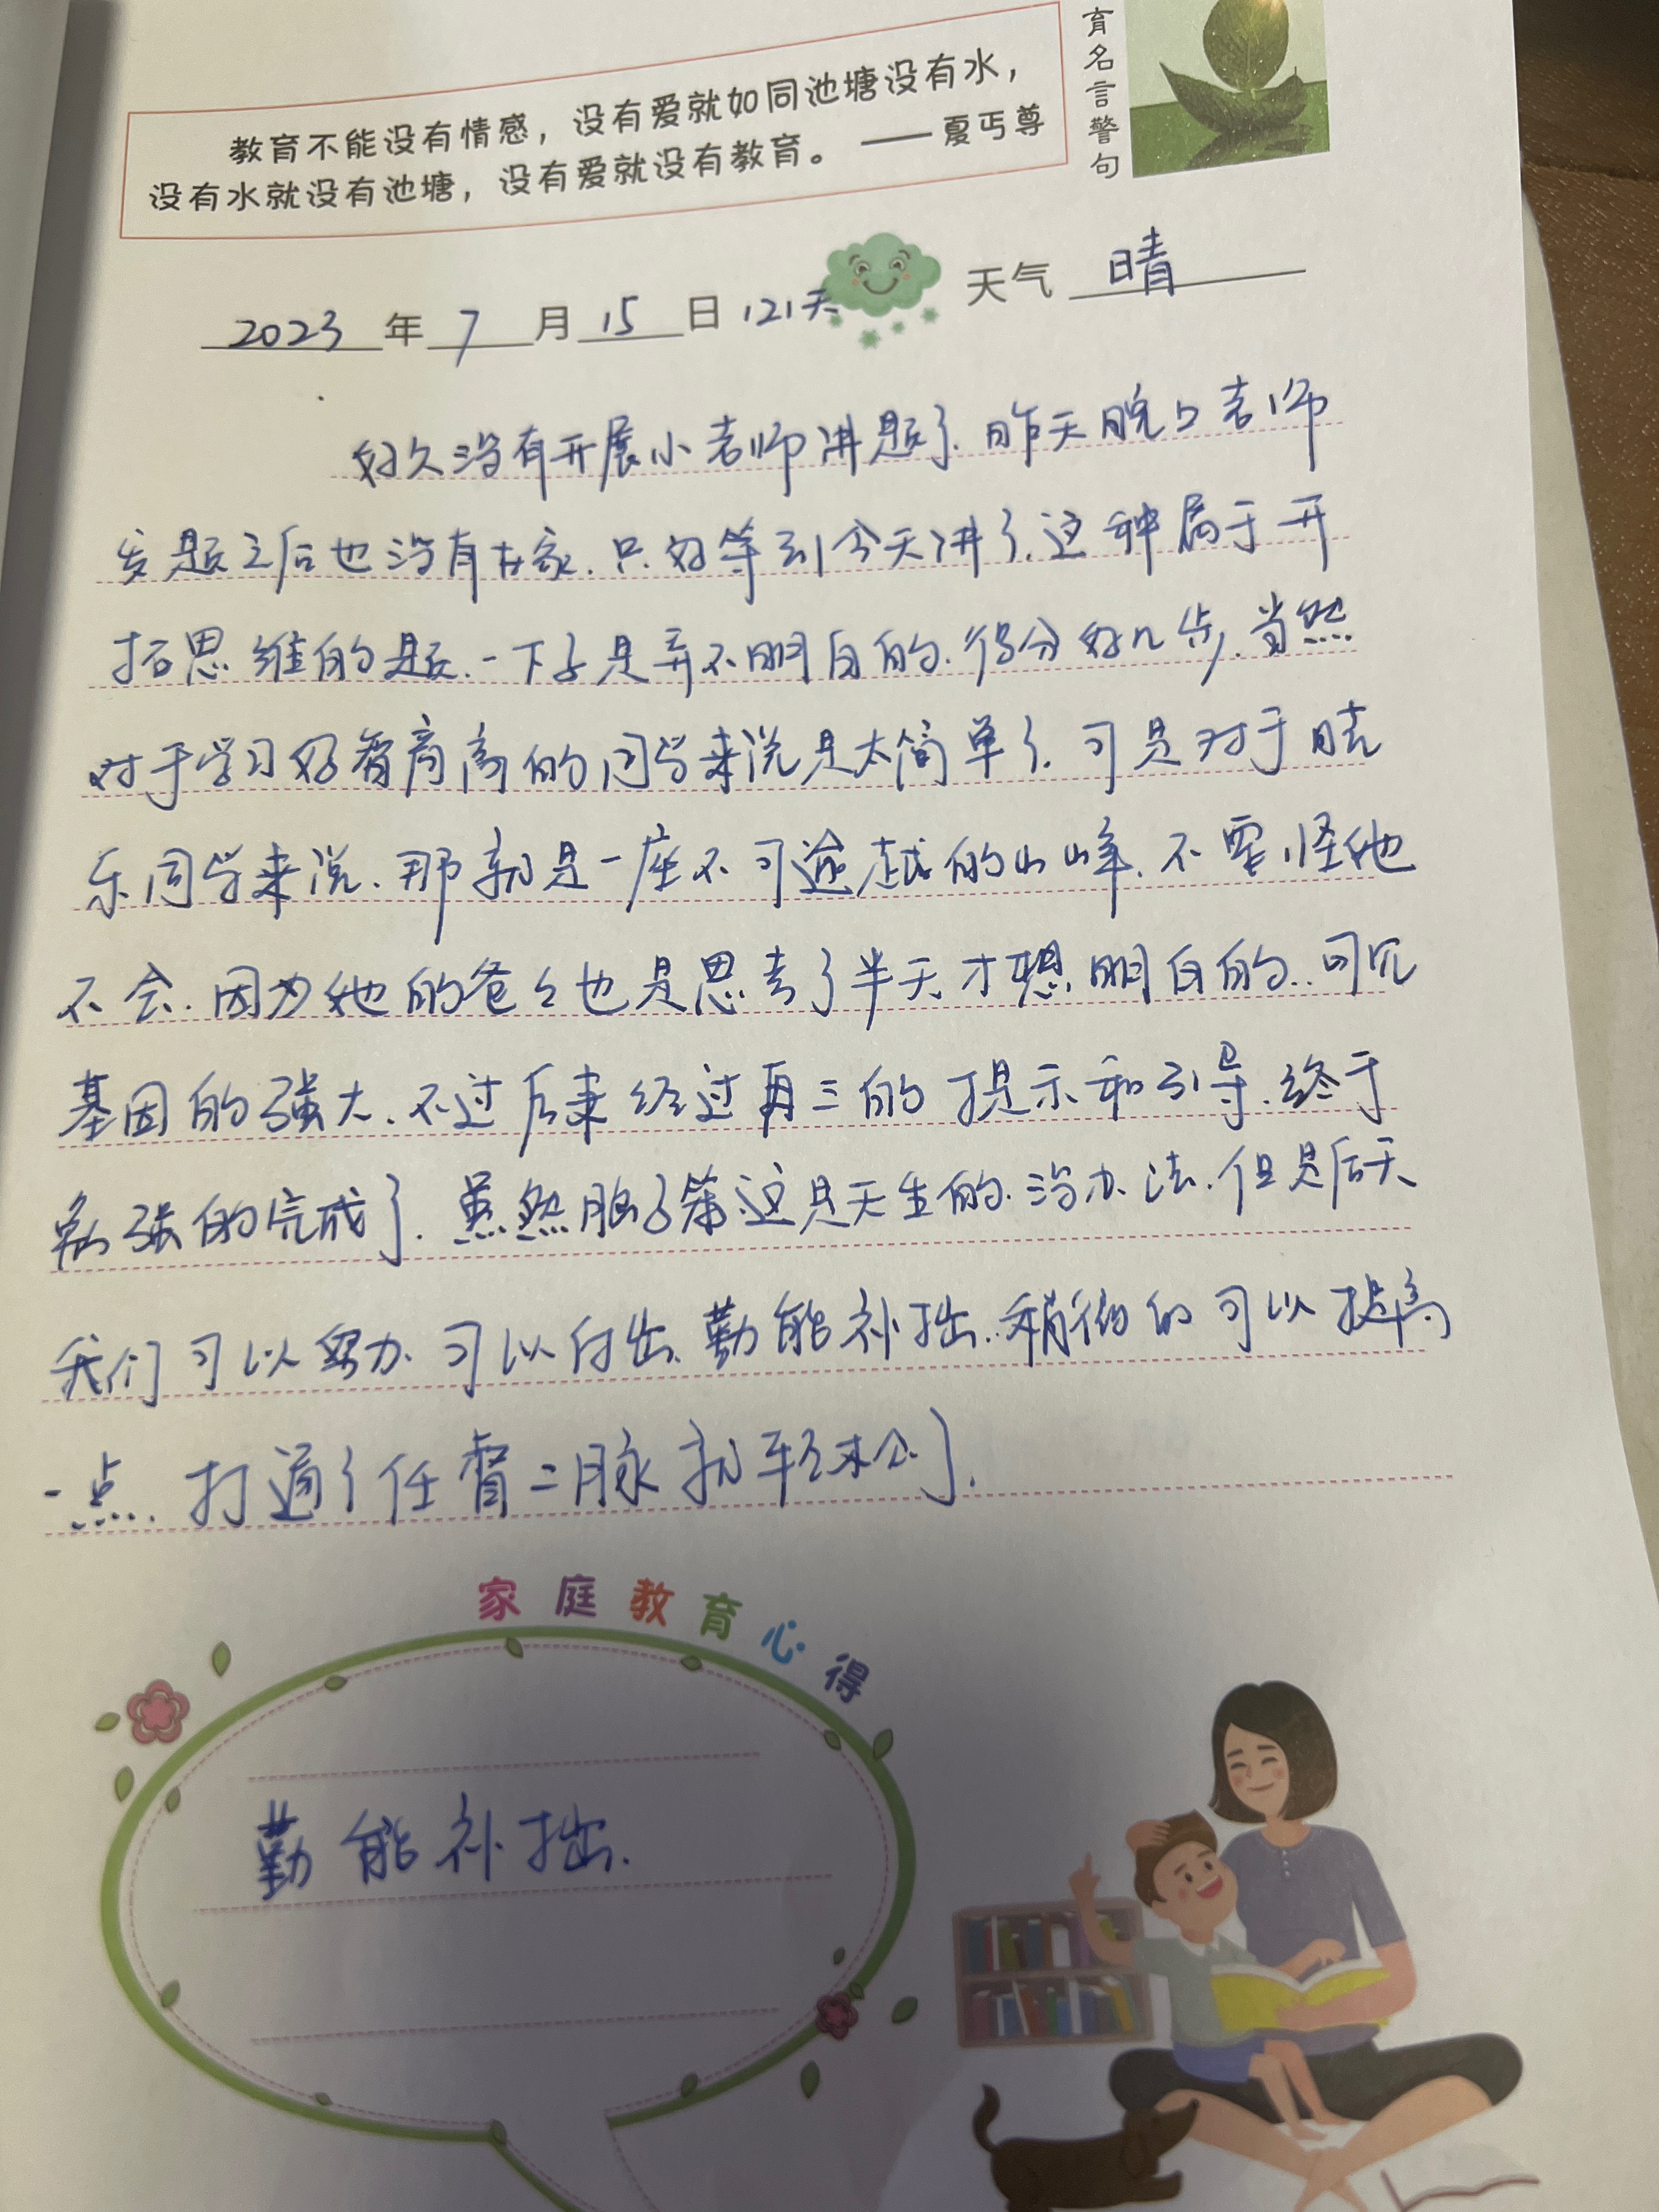 育名言警句
教育不能没有情感，没有爱就如同池塘没有水，
没有水就没有池塘，没有爱就没有教育。 ——夏丏尊
2023年7月15日 121天 天气 晴
好久没有开展小老师讲题了.昨天晚上老师
发题之后也没有在家.只好等到今天讲了.这种属于开
拓思维的题.一下子是弄不明白的.得分好几步.当然
对于学习好智商高的同学来说是太简单了.可是对于晓
乐同学来说.那就是一座不可逾越的山峰.不要怪她
不会.因为她的爸爸也是思考了半天才想明白的..可见
基因的强大.不过后来经过再三的提示和引导.终于
勉强的完成了.虽然脑子笨这是天生的.没办法.但是后天
我们可以努力.可以付出.勤能补拙..稍微的可以提高
一点.打通了任督二脉就轻松了.
家庭教育心得
勤能补拙.